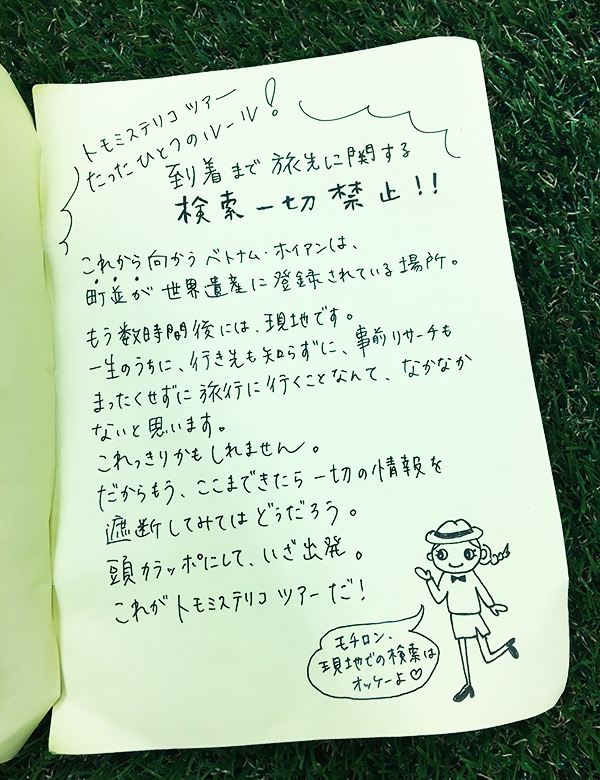 トモミステリコ ツアー
たったひとつのルール!
到着まで旅先に関する
検索一切禁止!!
これから向かうベトナム・ホイアンは、
町並が世界遺産に登録されている場所。
もう数時間後には、現地です。
一生のうちに、行き先も知らずに、事前リサーチも
まったくせずに旅行に行くことなんて、なかなか
ないと思います。
これっきりかもしれません。
だからもう、ここまできたら一切の情報を
遮断してみてはどうだろう。
頭カラッポにして、いざ出発。
これがトモミステリコ ツアーだ!
モチロン、
現地での検索は
オッケーよ♡